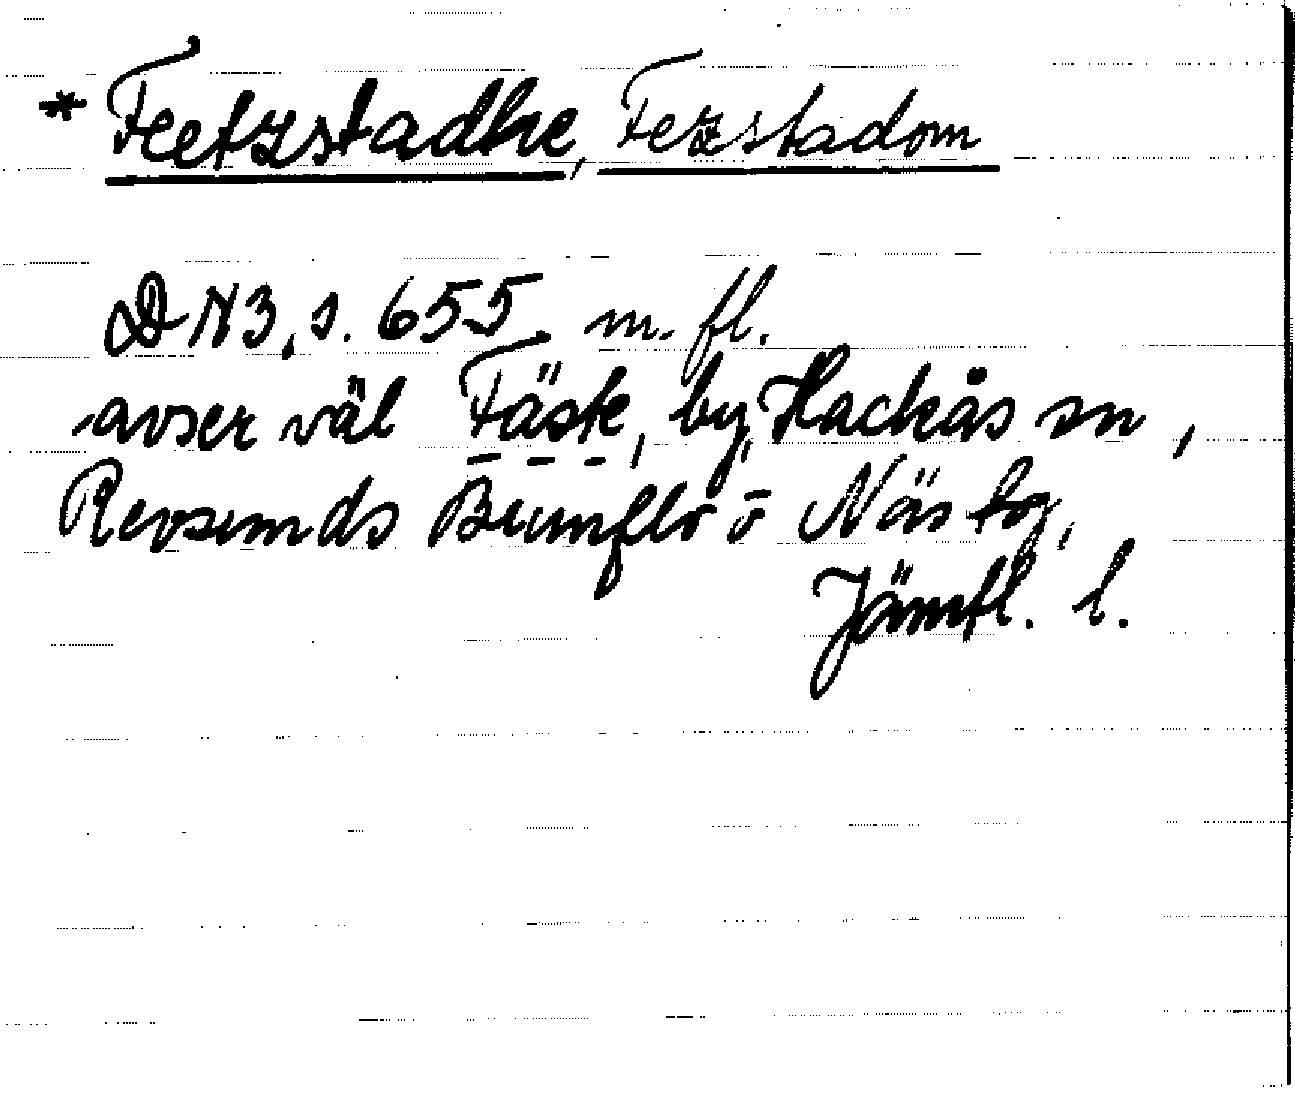 * Feetzstadhe, Fezstadom
DN3, s. 655 m. fl.
avser väl Fäste, by, Hackås sn,
Revsunds Brunflo o Näs tg,
Jämtl. l.